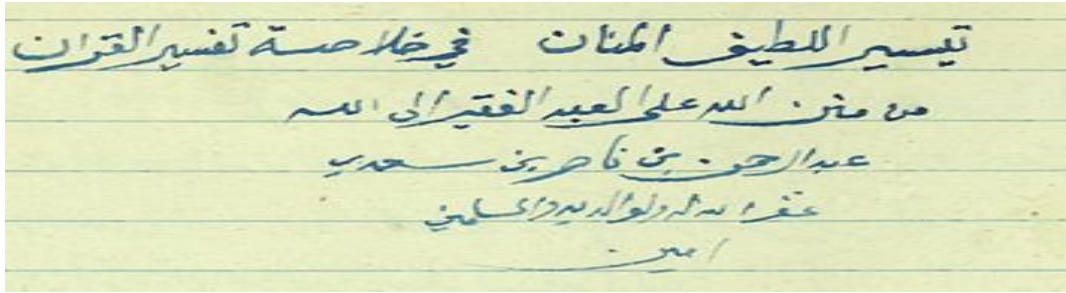 تيسير اللطيف المنان في خلاصة تفسير القرآن
من منن الله على العبد الفقير الى الله
عبدالرحمن بن ناصر بن سعدي
غفر الله له ولوالديه والمسلمين
امين